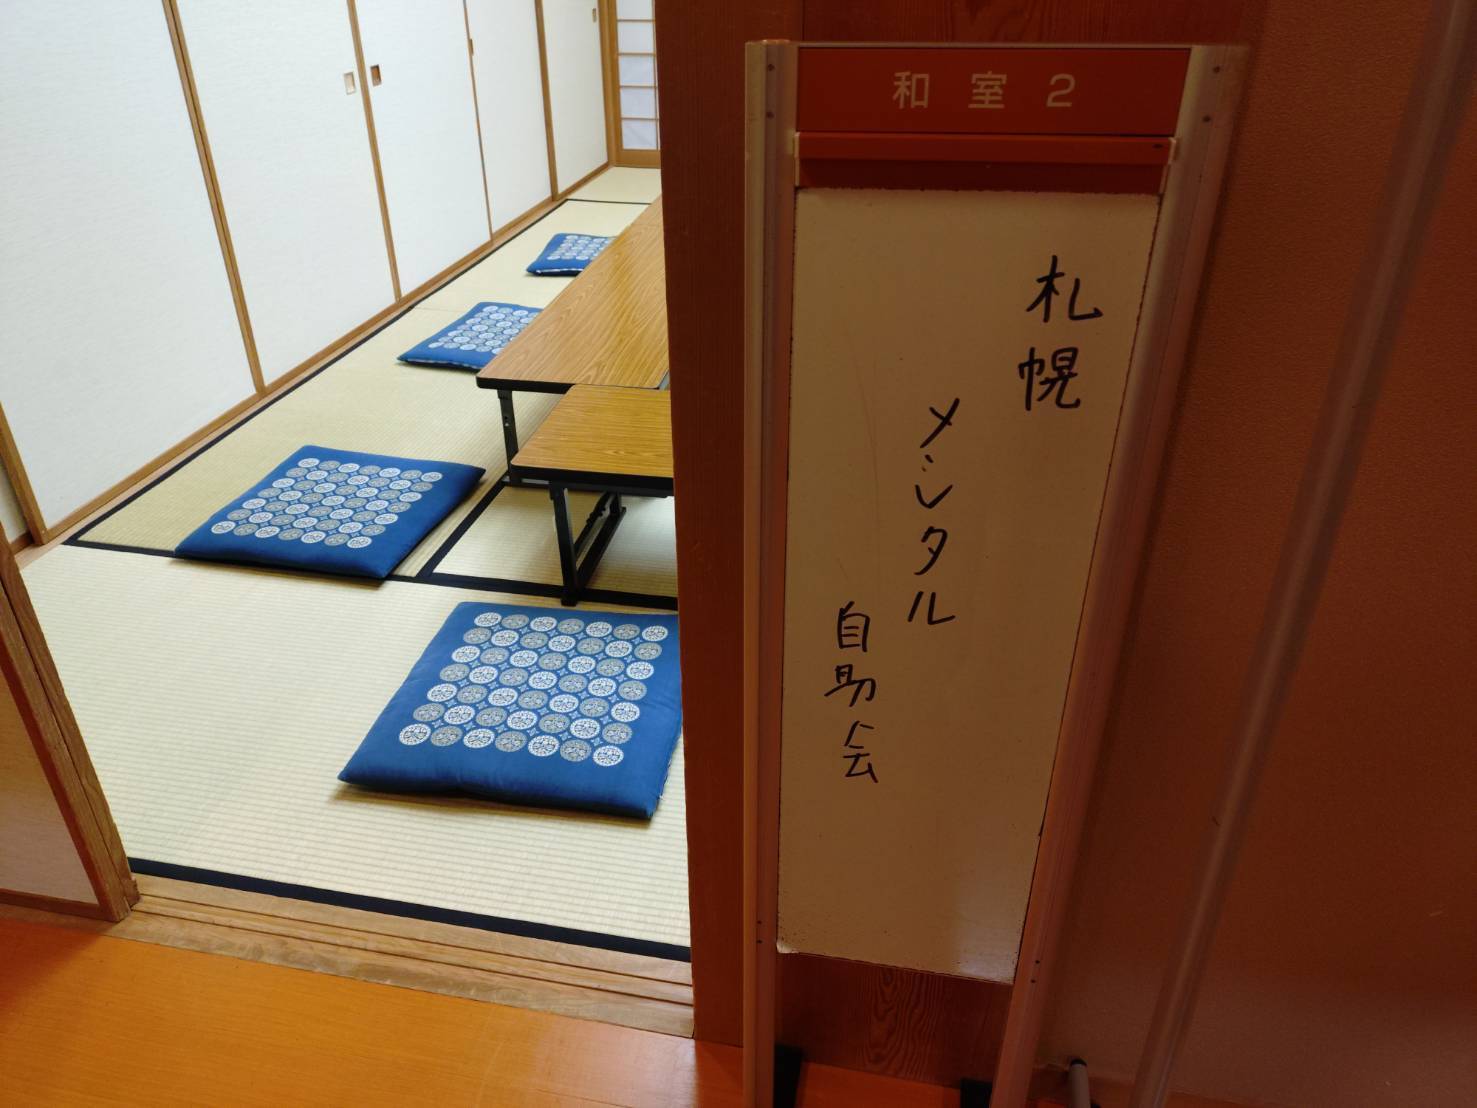 和室2
札幌
メンタル
自助会